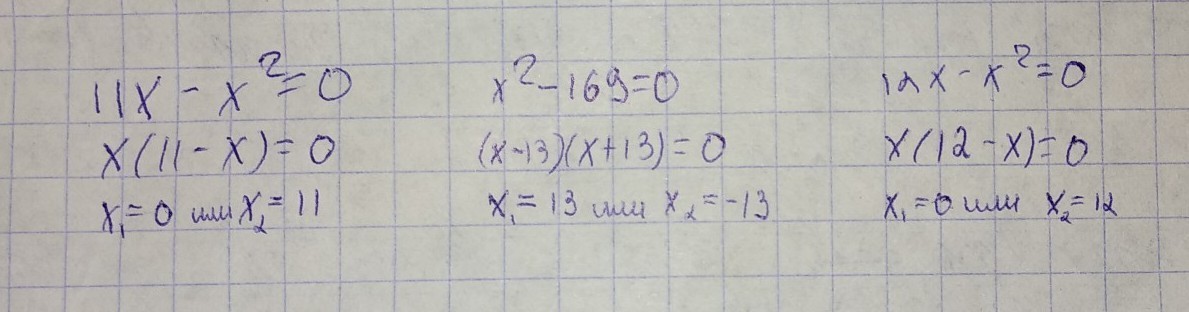 11x - x² = 0
x(11 - x) = 0
x₁ = 0 или x₂ = 11
x² - 169 = 0
(x - 13)(x + 13) = 0
x₁ = 13 или x₂ = -13
12x - x² = 0
x(12 - x) = 0
x₁ = 0 или x₂ = 12